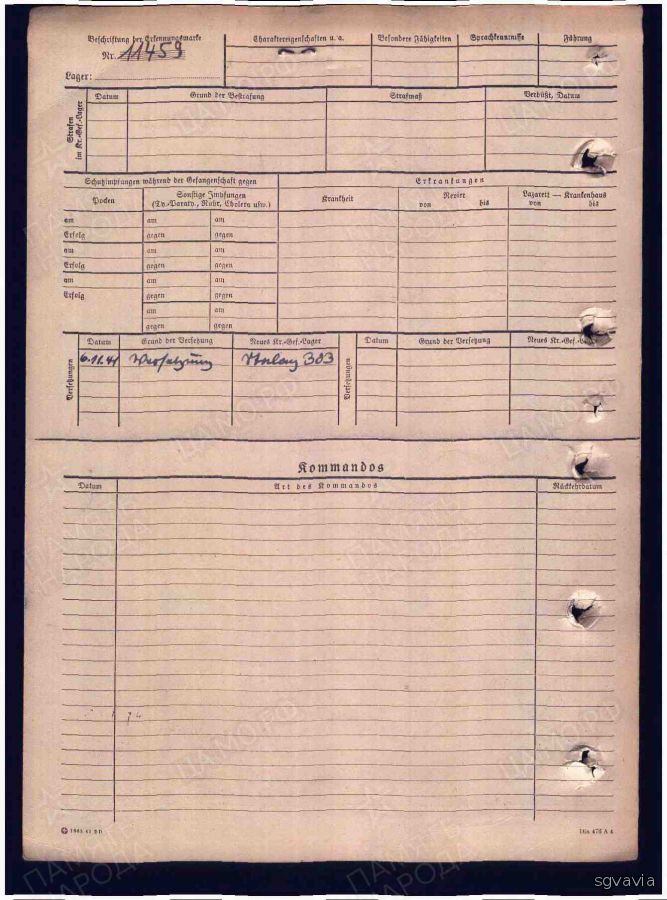 Beschriftung der Erkennungsmarke
Nr. 11459
Lager:
Charaktereigenschaften u. a.
Besondere Fähigkeiten
Sprachkenntnisse
Führung
Strafen
im Kr.-Gef.-Lager
Datum
Grund der Bestrafung
Strafmaß
Verbüßt, Datum
Schutzimpfungen während der Gefangenschaft gegen
Erkrankungen
Pocken
Sonstige Impfungen
(Ty.-Paraty., Ruhr, Cholera usw.)
Krankheit
Revier
von bis
Lazarett — Krankenhaus
von bis
am am am
Erfolg gegen gegen
am am am
Erfolg gegen gegen
am am am
Erfolg gegen gegen
am am
gegen gegen
Versetzungen
Datum
Grund der Versetzung
Neues Kr.-Gef.-Lager
Versetzungen
Datum
Grund der Versetzung
Neues Kr.-Gef.-
6.11.41 Versetzung Stalag 383
Kommandos
Datum
Art des Kommandos
Rückkehrdatum
Din 476 A 4
ПАМЯТЬ
НАРОДА
ЦАМО РФ
sgvavia